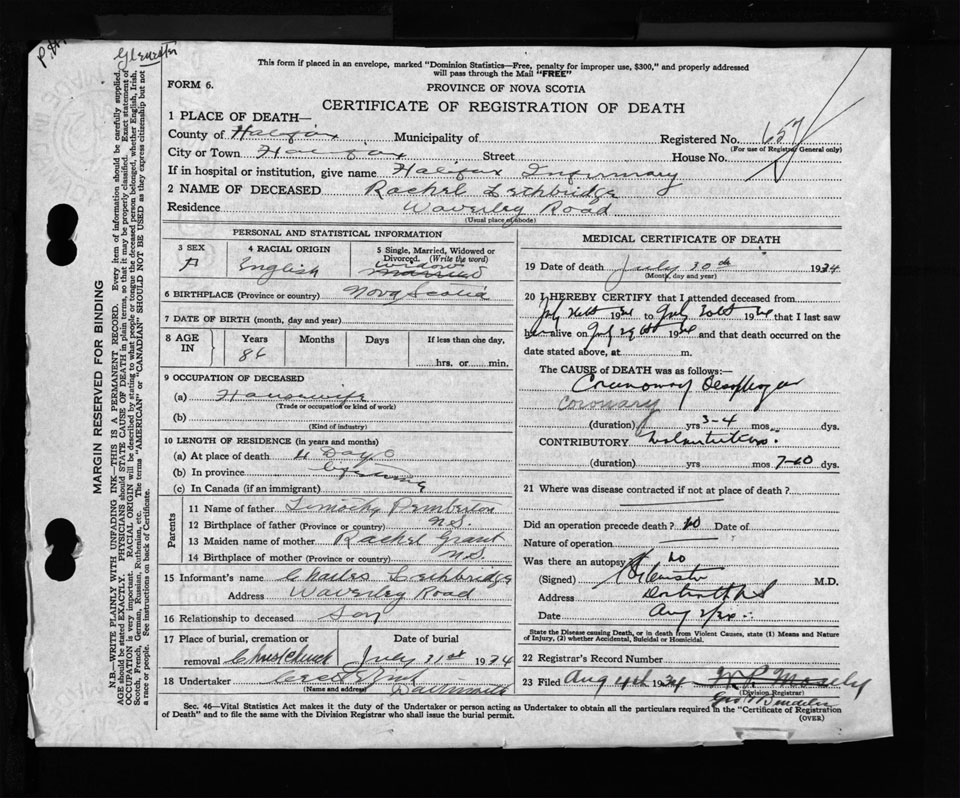 Glenister
This form if placed in an envelope, marked "Dominion Statistics—Free, penalty for improper use, $300," and properly addressed
will pass through the Mail "FREE"
FORM 6.
PROVINCE OF NOVA SCOTIA
CERTIFICATE OF REGISTRATION OF DEATH
1 PLACE OF DEATH—
County of Halifax Municipality of Registered No. 657
(For use of Registrar General only)
City or Town Halifax Street House No.
If in hospital or institution, give name Halifax Infirmary
2 NAME OF DECEASED Rachel Lethbridge
Residence Waverley Road
(Usual place of abode)
PERSONAL AND STATISTICAL INFORMATION
3 SEX F
4 RACIAL ORIGIN English
5 Single, Married, Widowed or
Divorced. (Write the word)
Widow
married
6 BIRTHPLACE (Province or country) Nova Scotia
7 DATE OF BIRTH (month, day and year)
8 AGE IN Years 86 Months Days If less than one day, hrs. or min.
9 OCCUPATION OF DECEASED
(a) Housewife
(Trade or occupation or kind of work)
(b)
(Kind of industry)
10 LENGTH OF RESIDENCE (in years and months)
(a) At place of death 4 Days
(b) In province Lifetime
(c) In Canada (if an immigrant)
Parents
11 Name of father Timothy Pemberton
12 Birthplace of father (Province or country) N.S.
13 Maiden name of mother Rachel Grant
14 Birthplace of mother (Province or country) N.S.
15 Informant's name Charles Lethbridge
Address Waverley Road
16 Relationship to deceased Son
17 Place of burial, cremation or removal Christchurch
Date of burial July 31st 1934
18 Undertaker Dartmouth
(Name and address)
MEDICAL CERTIFICATE OF DEATH
19 Date of death July 30th 1934
(Month, day and year)
20 I HEREBY CERTIFY that I attended deceased from
July 1934 to July 1934 that I last saw
her alive on July 29 1934 and that death occurred on the
date stated above, at m.
The CAUSE of DEATH was as follows:—
Coronary
(duration) yrs 3-4 mos dys.
CONTRIBUTORY
(duration) yrs mos 7-10 dys.
21 Where was disease contracted if not at place of death?
Did an operation precede death? no Date of
Nature of operation
Was there an autopsy? no
(Signed) M.D.
Address Dartmouth N S
Date Aug
State the Disease causing Death, or in death from Violent Causes, state (1) Means and Nature
of Injury, (2) whether Accidental, Suicidal or Homicidal.
22 Registrar's Record Number
23 Filed Aug 4th 1934 Mosely
(Division Registrar)
Sec. 46—Vital Statistics Act makes it the duty of the Undertaker or person acting as Undertaker to obtain all the particulars required in the "Certificate of Registration
of Death" and to file the same with the Division Registrar who shall issue the burial permit. (OVER)
MARGIN RESERVED FOR BINDING
N.B.—WRITE PLAINLY WITH UNFADING INK—THIS IS A PERMANENT RECORD. Every item of information should be carefully supplied.
AGE should be stated EXACTLY. PHYSICIANS should STATE CAUSE OF DEATH in plain terms, so that it may be properly classified. Exact statement of
OCCUPATION is very important. RACIAL ORIGIN will be described by stating to what people or tongue the deceased person belonged, whether English, Irish,
Scotch, French, German, Russian, Ruthenian, etc. The terms "AMERICAN" or "CANADIAN" SHOULD NOT BE USED as they express citizenship but not
a race or people. See instructions on back of Certificate.